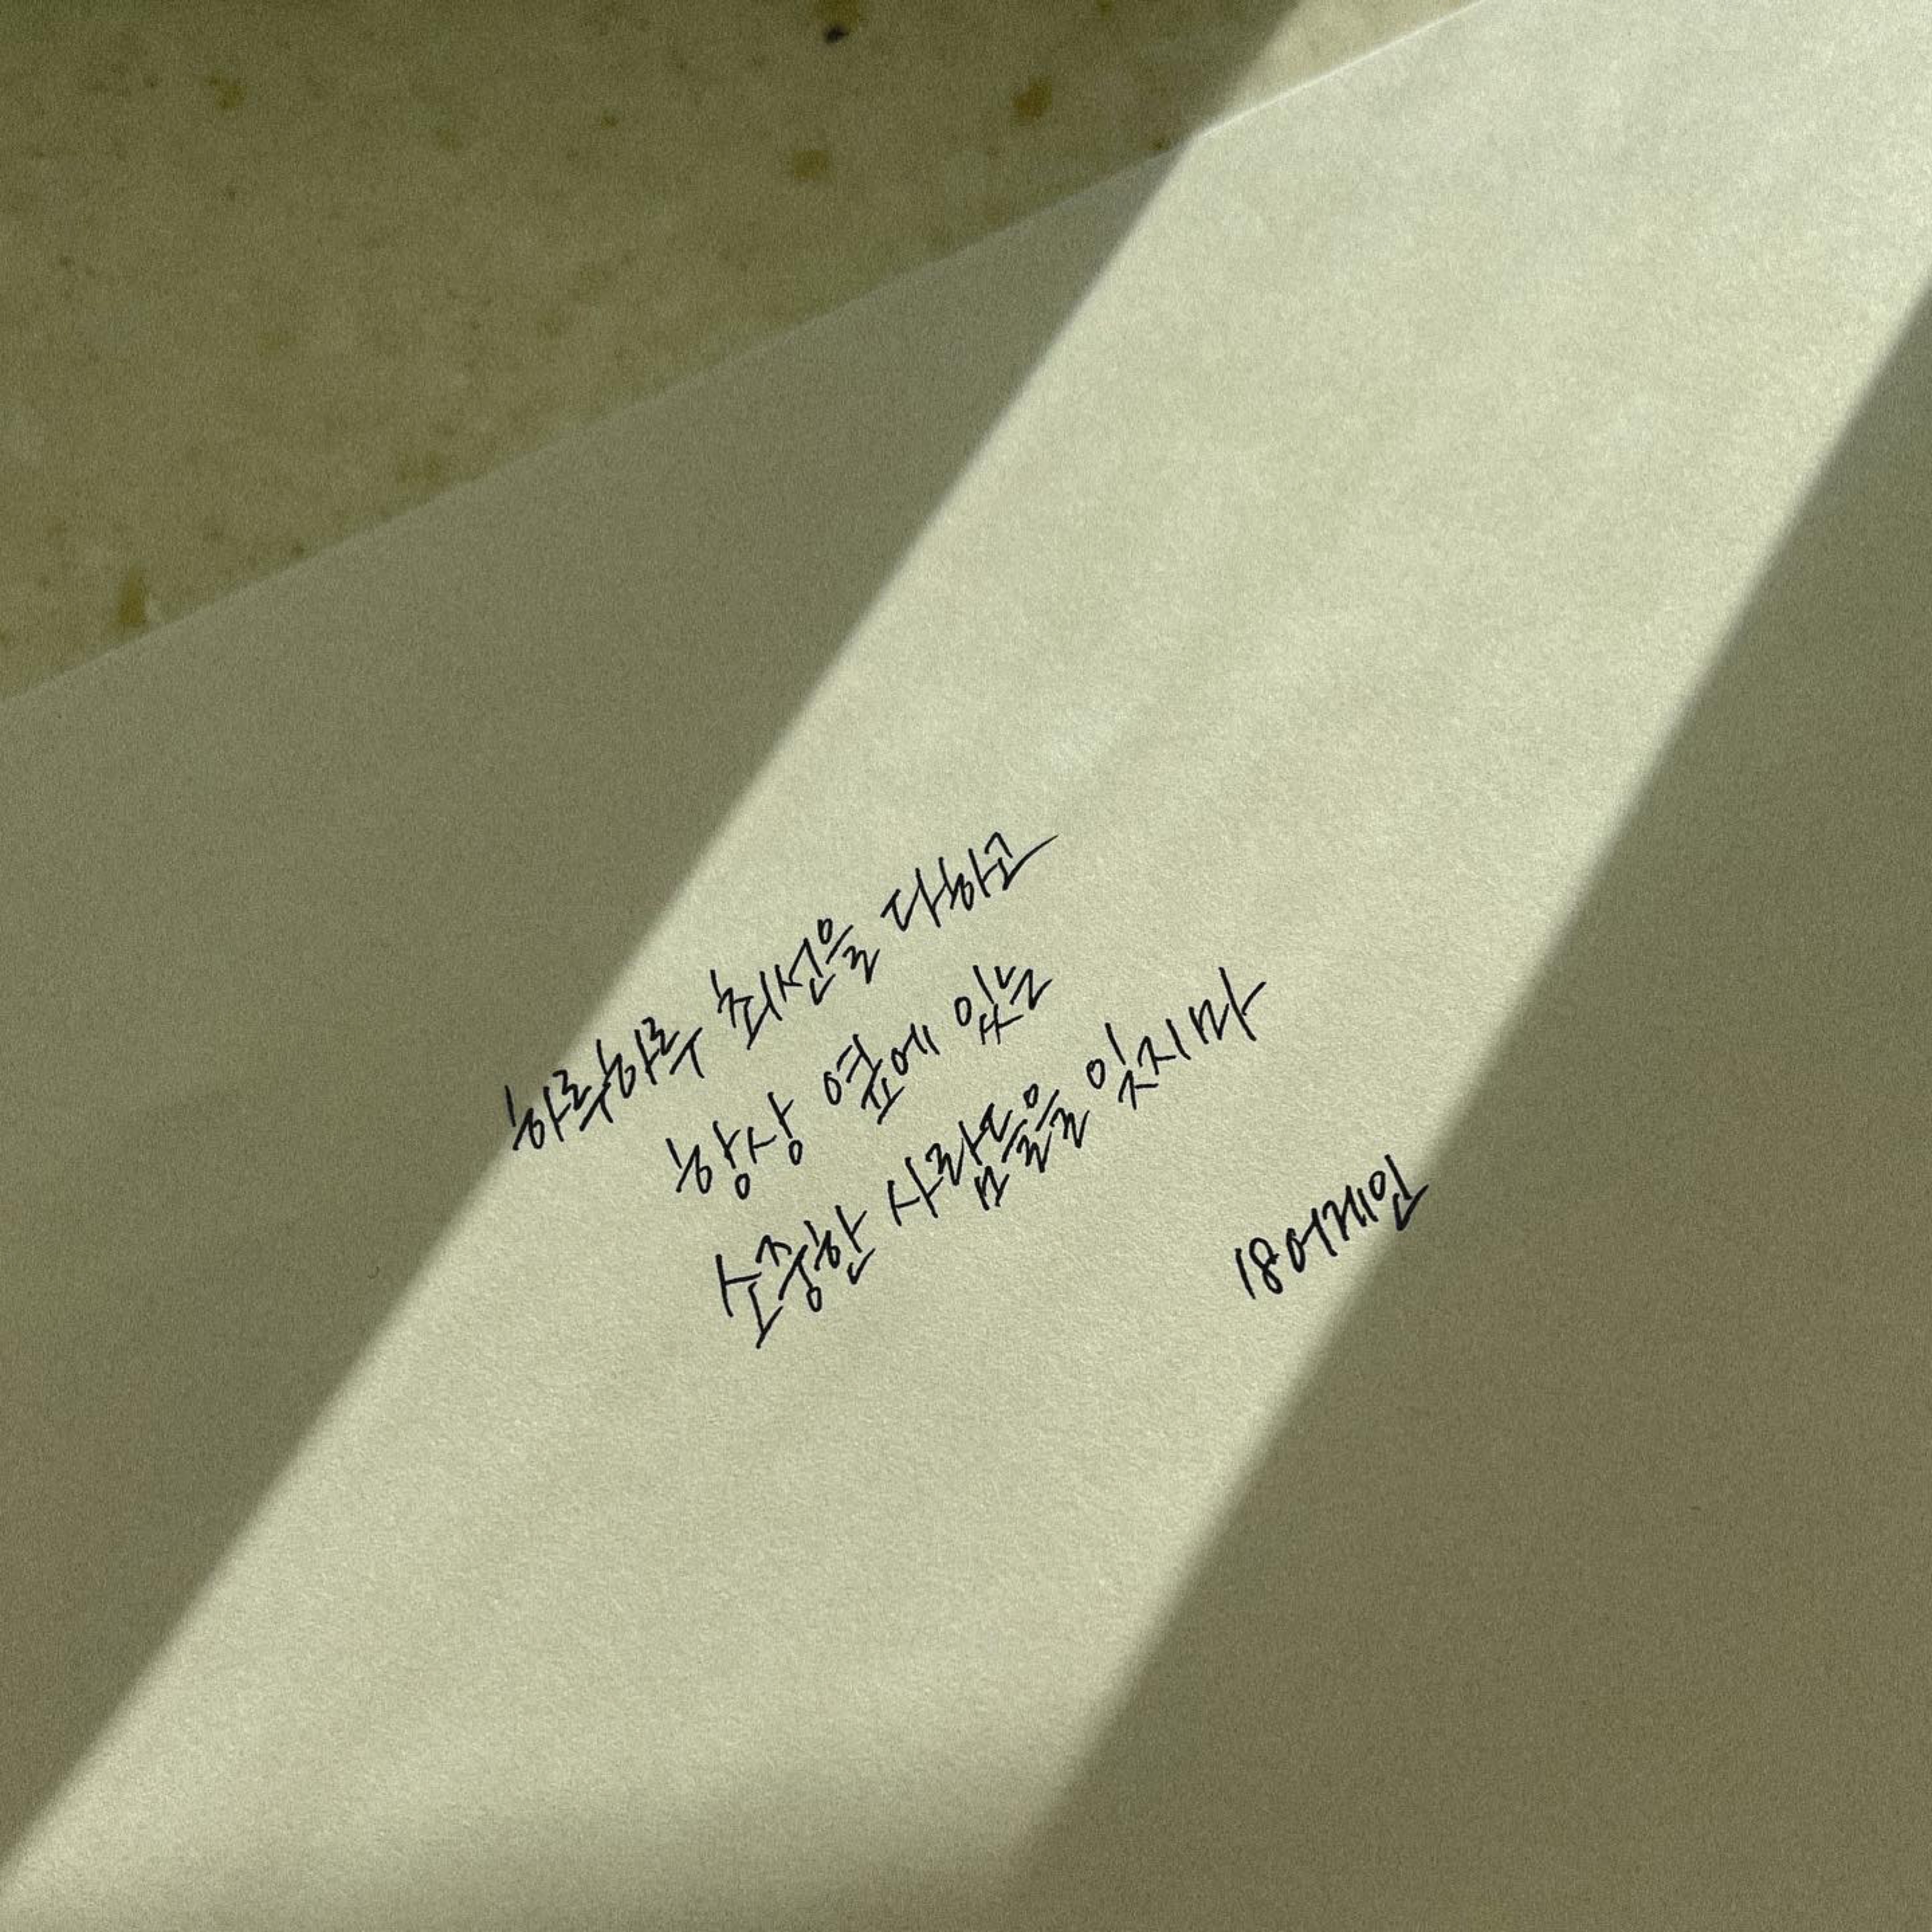 하루하루 최선을 다하고
항상 옆에 있는
소중한 사람들을 잊지마
18어게인